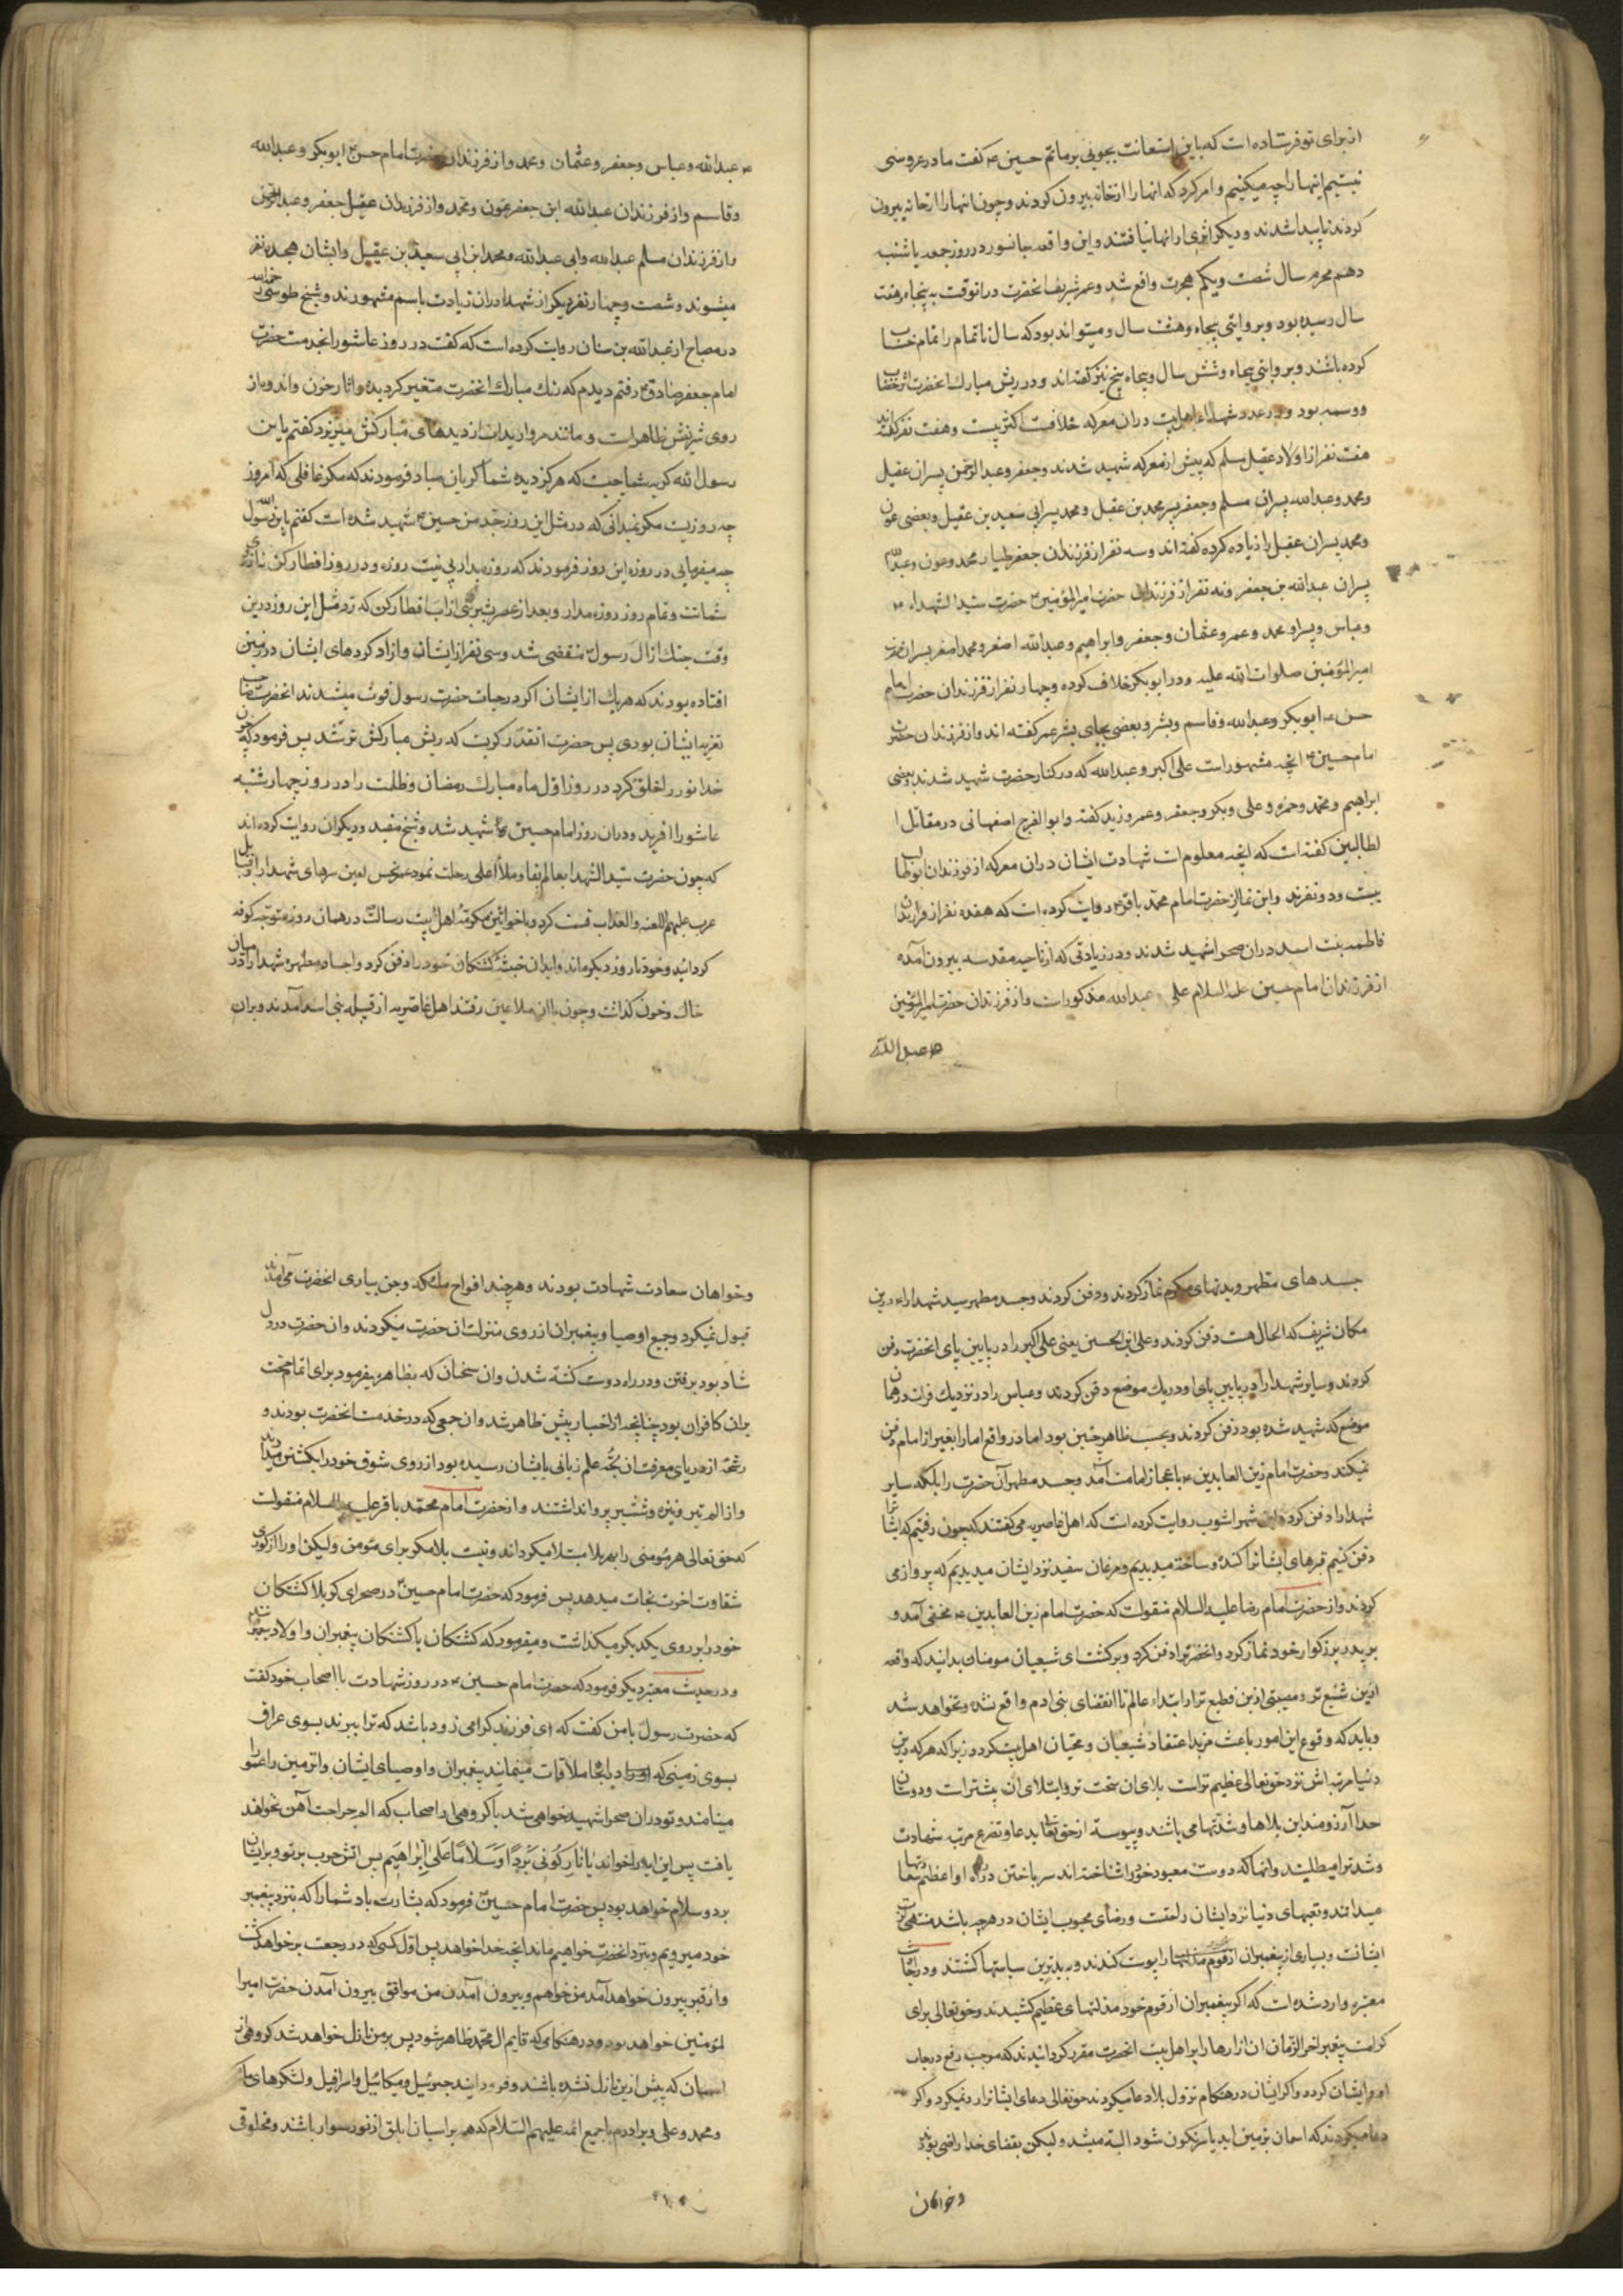 از برای تو فرستاده است که باین استعانت بجوئی بر ماتم حسین ع گفت ما در عروسی
نیستیم اینها را چه میکنیم وامر کرد که انها را از خانه بیرون کردند وچون انها را از خانه بیرون
کردند ناپیدا شدند و دیگر اثری از انها نیافتند واین واقعه جانسوز در روز جمعه یا شنبه
دهم محرم سال شصت ویکم هجرت واقع شد وعمر شریف انحضرت درانوقت به پنجاه وهفت
سال رسیده بود وبروایتی پنجاه وهشت سال ومیتواند بود که سال ناتمام را تمام حساب
کرده باشند وبروایتی پنجاه وشش سال وپنجاه پنج نیز گفته اند ودر ریش مبارک انحضرت اثر خضاب
ووسمه بود ودر عدد شهداء اهلبیت دران معرکه خلافست اکثر بیست وهفت نفر گفته اند
هفت نفر از اولاد عقیل مسلم که پیش از معرکه شهید شدند وجعفر وعبدالرحمن پسران عقیل
ومحمد وعبدالله پسران مسلم وجعفر پسر محمد بن عقیل ومحمد پسر ابی سعید بن عقیل وبعضی عون
ومحمد پسران عقیل را زیاده کرده گفته اند وسه نفر از فرزندان جعفر طیار محمد وعون وعبدالله
پسران عبدالله بن جعفر ونه نفر از فرزندان حضرت امیرالمؤمنین ع حضرت سیدالشهداء ع
وعباس وپسر او محمد وعمر وعثمان وجعفر وابراهیم وعبدالله اصغر ومحمد اصغر پسران حضرت
امیرالمؤمنین صلوات الله علیه ودر ابوبکر خلاف کرده وچهار نفر از فرزندان حضرت امام
حسن ع ابوبکر وعبدالله وقاسم وبشر وبعضی بجای بشر عمر گفته اند واز فرزندان حضرت
امام حسین ع انچه مشهور است علی اکبر وعبدالله که در کنار حضرت شهید شدند وبعضی
ابراهیم ومحمد وحمزه وعلی وبکر وجعفر وعمر وزید گفته وابوالفرج اصفهانی در مقاتل ا
لطالبین گفته است که انچه معلوم است شهادت ایشان دران معرکه از فرزندان ابوطالب
بیست ودو نفرند وابن نما از حضرت امام محمد باقر ع روایت کرده است که هفده نفر از فرزندان
فاطمه بنت اسد دران صحرا شهید شدند ودر زیارتی که از ناحیه مقدسه بیرون آمده
از فرزندان امام حسین علیه السلام علی وعبدالله مذکور است واز فرزندان حضرت امیرالمؤمنین
ع عبدالله
ع عبدالله وعباس وجعفر وعثمان ومحمد واز فرزندان حضرت امام حسن ع ابوبکر وعبدالله
وقاسم واز فرزندان عبدالله ابن جعفر عون ومحمد واز فرزندان عقیل جعفر وعبدالرحمن
واز فرزندان مسلم عبدالله وابی عبدالله ومحمد ابن ابی سعید بن عقیل وایشان هجده نفر
میشوند وشصت وچهار نفر دیگر از شهدا دران زیارت باسم مشهورند وشیخ طوسی رحمه الله
در مصباح از عبدالله بن سنان روایت کرده است که گفت در روز عاشورا بخدمت حضرت
امام جعفر صادق ع رفتم دیدم که رنگ مبارک انحضرت متغیر گردیده واثار حزن واندوه از
روی شریفش ظاهر است و مانند مروارید اب از دیدهای مبارکش میریزد گفتم یا بن
رسول الله گریه شما چیست که هرگز دیده شما گریان مباد فرمودند که مگر غافلی که امروز
چه روزیست مگر نمیدانی که در مثل این روز جد من حسین ع شهید شده است گفتم یابن رسول الله
چه میفرمایی در روزه این روز فرمودند که روزه بدار بی نیت روزه ودر روز افطار کن نه از روی
شماتت وتمام روز روزه مدار وبعد از عصر بشربتی از اب افطار کن که در مثل این روز درین
وقت جنگ از ال رسول منقضی شد وسی نفر از ایشان وازاد کردهای ایشان در زمین
افتاده بودند که هر یک از ایشان اگر در حیات حضرت رسول فوت میشدند انحضرت صاحب
تعزیه ایشان بودی پس حضرت انقدر گریست که ریش مبارکش تر شد پس فرمود که چون
خدا نور را خلق کرد در روز اول ماه مبارک رمضان وظلمت را در روز چهارشنبه
عاشورا افرید ودران روز امام حسین ع شهید شد وشیخ مفید ودیگران روایت کرده اند
که چون حضرت سیدالشهدا بعالم بقا وملأ اعلی رحلت نمود عمر نحس لعین سرهای شهدا را بقبایل
عرب علیهم اللعنه والعذاب قسمت کرد وباخواتین مکرمه اهل بیت رسالت درهمان روز متوجه کوفه
گردانید وخود تا روز دیگر ماند وابدان خبیثه کشتگان خود را دفن کرد واجساد مطهره شهدا را در میان
خاک وخون گذاشت وچون ان ملاعین رفتند اهل غاضریه از قبیله بنی اسد آمدند وبران
جسدهای مطهر وبدنهای مکرم نماز کردند ودفن کردند وجسد مطهر سید شهدا را درین
مکان شریف که الحال هست دفن کردند وعلی ابن الحسین یعنی علی اکبر را در پایین پای انحضرت دفن
کردند وسایر شهدا را در پایین پای او در یک موضع دفن کردند وعباس را در نزدیک فرات درهمان
موضع که شهید شده بود دفن کردند وبحسب ظاهر چنین بود اما در واقع امام را بغیر از امام دفن
نمیکند وحضرت امام زین العابدین ع باعجاز امامت آمد وجسد مطهر آن حضرت را بلکه سایر
شهدا را دفن کرد وابن شهر اشوب روایت کرده است که اهل غاضریه می گفتند که چون رفتیم که ایشانرا
دفن کنیم قبرهای ایشانرا کنده وساخته میدیدیم ومرغان سفید نزد ایشان میدیدیم که پرواز می
کردند واز حضرت امام رضا علیه السلام منقولست که حضرت امام زین العابدین ع مخفی آمد و
بر پدر بزرگوار خود نماز کرد وانحضرترا دفن کرد وبرگشت ای شیعیان مومنان بدانید که واقعه
ازین شنیع تر ومصیبتی ازین فظیع تر از ابتداء عالم تا انقضای بنی ادم واقع نشده ونخواهد شد
وباید که وقوع این امور باعث مزید اعتقاد شیعیان ومحبان اهل بیت گردد زیرا که هر که درین
دنیا مرتبه اش نزد حق تعالی عظیم تراست بلای ان سخت تر وابتلای ان بیشتر است ودوستان
خدا آرزومند این بلاها وشدتها می باشند وپیوسته از حق تعالی بدعا وتضرع مرتبه شهادت
وشدت را میطلبند وانها که دوست معبود خود را شناخته اند سر باختن در راه او اعظم سعادتها
میدانند وتعبهای دنیا نزد ایشان راحتست ورضای محبوب ایشان در هرچه باشد منتهی
ایشانست وبسیاری از پیغمبران از قوم انها را پوست کندند وبه بدترین سیاستها کشتند ودر احادیث
معتبره وارد شده است که اگر پیغمبران از قوم خود مذلتهای عظیم کشیدند وحق تعالی برای
کرامت پیغمبر اخرالزمان ان ازارها را بر اهل بیت انحضرت مقرر گردانیدند که موجب رفع درجات
او وایشان گردد واگر ایشان درهنگام نزول بلا دعا میکردند حق تعالی دعای ایشانرا رد نمیکرد واگر
دعا میکردند که اسمان بزمین اید یا سرنگون شود البته میشد ولیکن بقضای خدا راضی بودند
وخواهان
وخواهان سعادت شهادت بودند وهرچند افواج ملائکه وجن بیاری انحضرت می آمدند
قبول نمیکرد وجمیع اوصیا وپیغمبران از روی منزلت ان حضرت میکردند وان حضرت در دل
شاد بود برفتن ودر راه دوست کشته شدن وان سخنان که بظاهر میفرمود برای اتمام حجت
بران کافران بود چنانچه از اخبار پیش ظاهر شد وان جمعی که در خدمت انحضرت بودند و
رشحه از دریای معرفت ان علم ربانی بایشان رسیده بود از روی شوق خود را بکشتن میدادند
واز الم تیر ونیزه وشمشیر پروا نداشتند واز حضرت امام محمد باقر علیه السلام منقولست
که حق تعالی هر مؤمنی را بهر بلا مبتلا میگرداند ونیست بلا مگر برای مؤمن ولیکن او را از کوری
شقاوت اخرت نجات میدهد پس فرمود که حضرت امام حسین ع در صحرای کربلا کشتگان
خود را بر روی یکدیگر میگذاشت ومیفرمود که کشتگان ما کشتگان پیغمبران واولاد پیغمبرانند
ودر حدیث معتبر دیگر فرمود که حضرت امام حسین ع در روز شهادت با اصحاب خود گفت
که حضرت رسول با من گفت که ای فرزند گرامی زود باشد که ترا ببرند بسوی عراق
بسوی زمینی که درانجا ملاقات مینمایند پیغمبران واوصیای ایشان وانزمین را عمورا
مینامند وتو دران صحرا شهید خواهی شد با گروهی از اصحاب که الم جراحت آهن نخواهند
یافت پس این ایه را خواند یا نار کونی بردا وسلاما علی ابراهیم پس اتش حرب بر تو وبر ایشان
برد وسلام خواهد بود پس حضرت امام حسین فرمود که بشارت باد شما را که بنزد پیغمبر
خود میرویم وبنزد انحضرت خواهیم ماند انچه خدا خواهد پس اول کسی که در رجعت برخواهد گشت
واز قبر بیرون خواهد آمد من خواهم وبیرون آمدن من موافق بیرون آمدن حضرت امیرا
لمؤمنین خواهد بود ودر هنگامی که قایم ال محمد ظاهر شود پس بر من نازل خواهد شد گروهی از
اسمان که پیش ازین نازل نشده باشند وفرود ایند جبرئیل ومیکائیل واسرافیل ولشکرهای ملائکه
ومحمد وعلی وبرادرم با جمیع ائمه علیهم السلام که همه بر اسبان ابلق از نور سوار باشند ومخلوقی